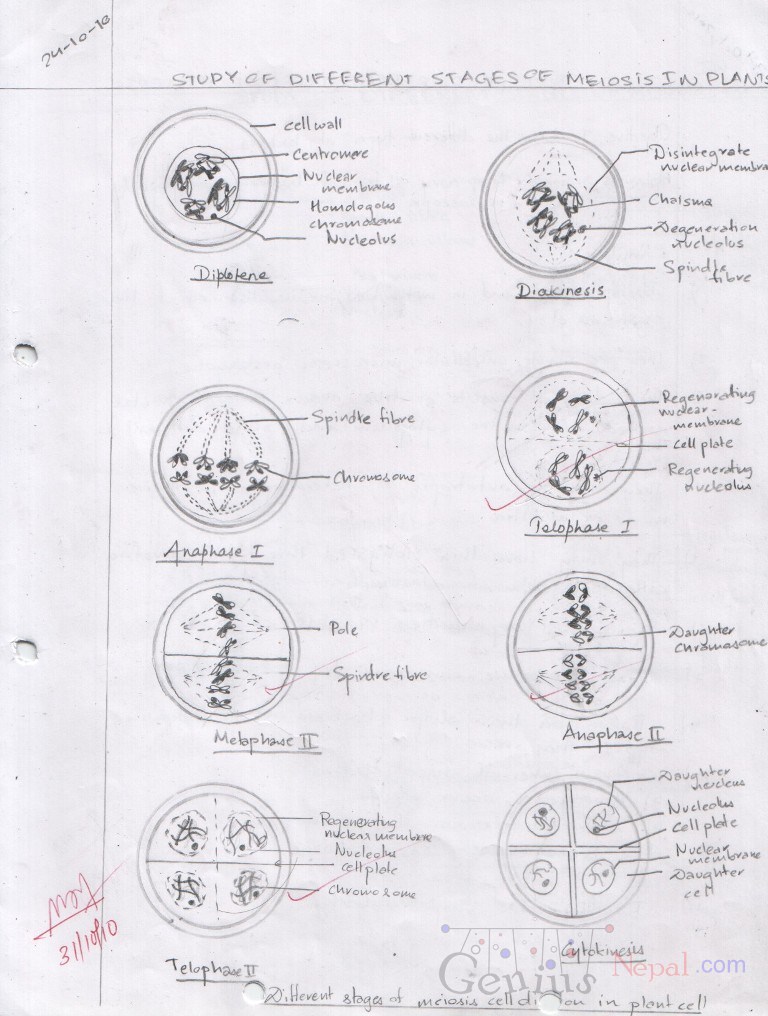 24-10-10
STUDY OF DIFFERENT STAGES OF MEIOSIS IN PLANTS
cell wall
Centromere
Nuclear
membrane
Homologous
chromosome
Nucleolus
Diplotene
Disintegrate
nuclear membra
Chaisma
Degeneration
nucleolus
Spindle
fibre
Diakinesis
Spindle fibre
Chromosome
Anaphase I
Regenerating
nuclear-
membrane
cell plate
Regenerating
nucleolus
Telophase I
Pole
Spindre fibre
Metaphase II
Daughter
chromasome
Anaphase II
Regenerating
nuclear membrane
Nucleolus
cell plate
chromosome
Telophase II
Daughter
nucleus
Nucleolus
Cell plate
Nuclear
membrane
Daughter
cell
Cytokinesis
31/10/10
Genius Nepal.com
Different stages of meiosis cell in plant cell